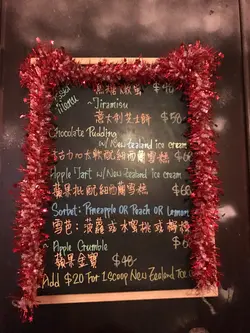 Menu
$48
~Tiramisu
意大利芝士餅 $50
Chocolate Pudding
w/ New Zealand ice cream
古力心太軟配紐西蘭雪糕 $68
Apple Tart w/ New Zealand ice cream
蘋果批配紐西蘭雪糕 $68
Sorbet: Pineapple OR Peach OR Lemon
雪芭: 菠蘿 或 水蜜桃 或 檸檬
~ Apple Crumble
蘋果金寶 $48
Add $20 For 1 Scoop New Zealand Ice